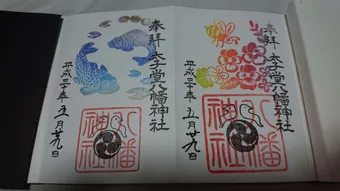 奉拝
太子堂八幡神社
平成三十年五月廿九日
八幡神社
奉拝
太子堂八幡神社
平成三十年五月廿九日
八幡神社